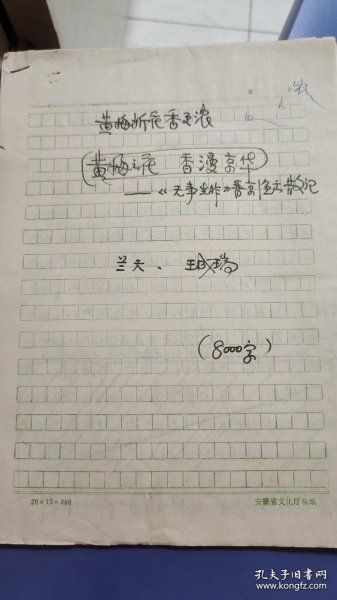 黄梅新花香更浓
(黄梅之花 香漫京华)
——《无事生非》晋京演出散记
兰天、
(8000字)
20×15=300
安徽省文化厅稿纸
孔夫子旧书网